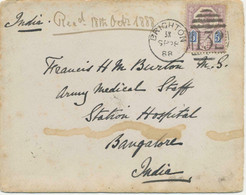 India. Rec'd 11th Oct. 1888
BRIGHTON
SP 25
88
5 5
Francis H M Burton M.S.
Army Medical Staff
Station Hospital
Bangalore
India